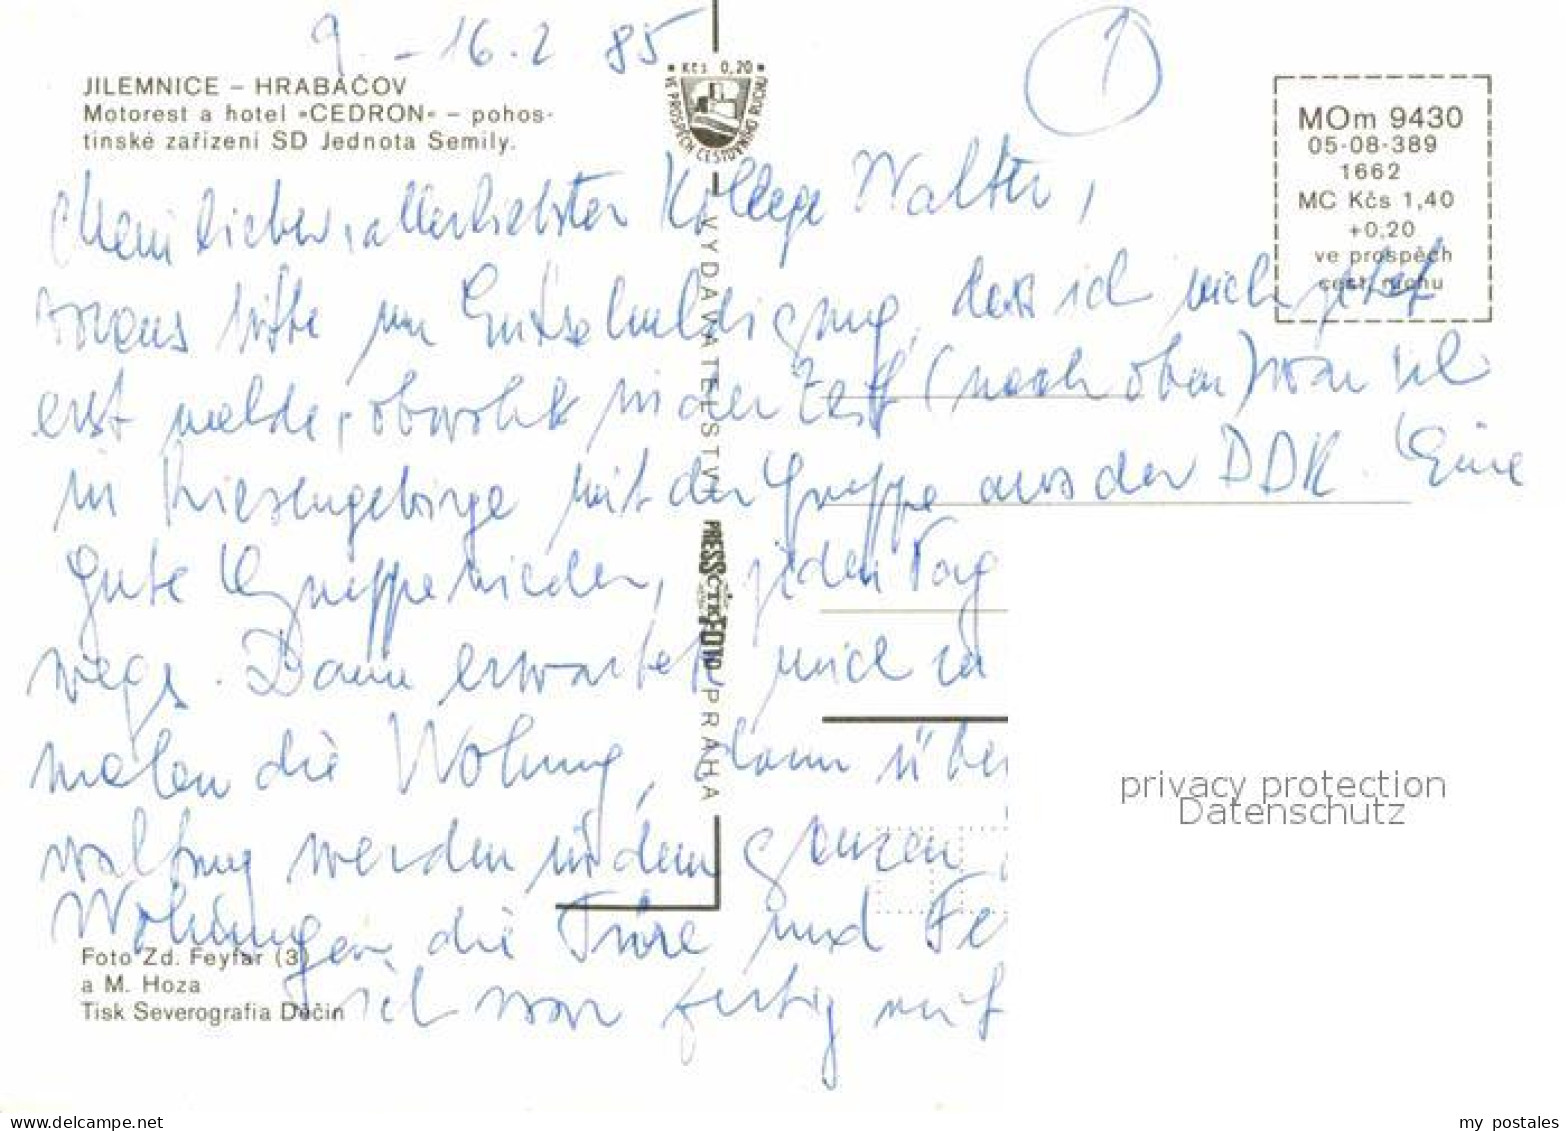 9. - 16. 2 85
1
JILEMNICE – HRABAČOV
Motorest a hotel »CEDRON« – pohos-
tinské zařízení SD Jednota Semily.
Kčs 0,20
VE PROSPĚCH CESTOVNÍHO RUCHU
MOm 9430
05-08-389
1662
MC Kčs 1,40
+0,20
ve prospěch
cest. ruchu
Mein lieber, allerliebster Kollege Walter,
bitte um Entschuldigung, dass ich mich jetzt
erst melde, obwohl in der Zeit (nach oben) war ich
in Riesengebirge mit der Gruppe aus der DDR. Eine
gute Gruppe wieder, jeden Tag
wegs. Dann erwartete mich zu
malen die Wohung, dann über
waltung werden in dem ganzen
Wohungen die Türe und Fe
ich war fertig mit
VYDAVATELSTVÍ PRESSFOTO PRAHA
ČTK
Foto Zd. Feyfar (3)
a M. Hoza
Tisk Severografia Děčín
privacy protection
Datenschutz
www.delcampe.net
my_postales